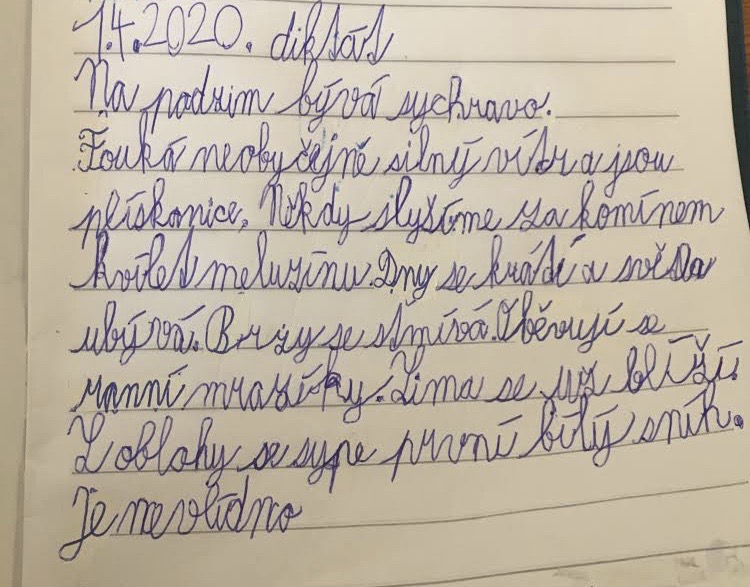 1.4.2020. diktát
Na podzim bývá sychravo.
Fouká neobyčejně silný vítr a jsou
plískanice. Někdy slyšíme za komínem
kvílet meluzínu. Dny se krátí a světla
ubývá. Brzy se stmívá. Oběvují se
ranní mrazíky. Zima se už blíží.
Z oblohy se sype první bílý sníh.
Je nevlídno